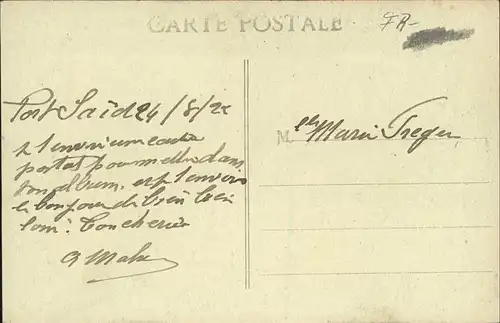 CARTE POSTALE
FR-
Port Saïd 24/8/22
je t'envoie une carte
postal pour mettre dans
ton album. et je t'envois
le bonjour de bien
loin.
M elle Marie Treguer